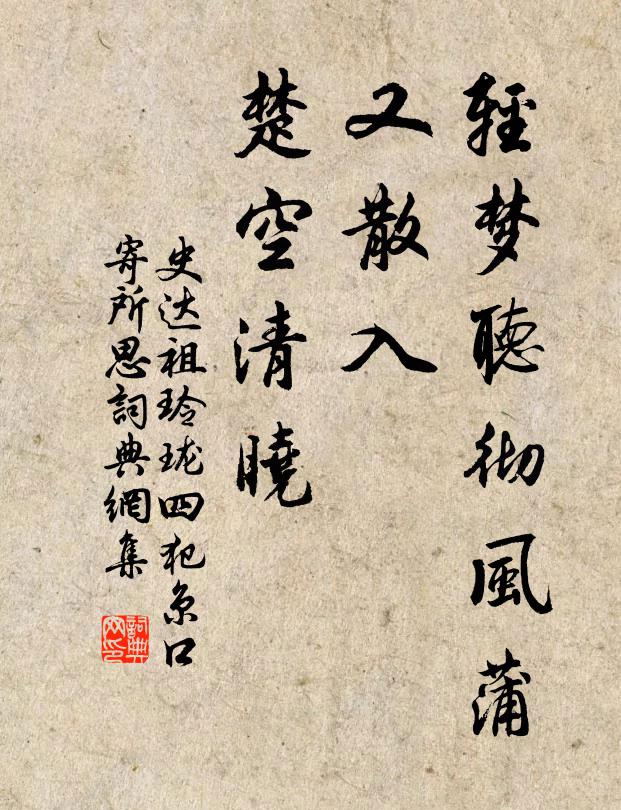 輕梦聽彻風蒲
又散入
楚空清曉
史达祖玲珑四犯京口
寄所思詞典網集
詞典网印